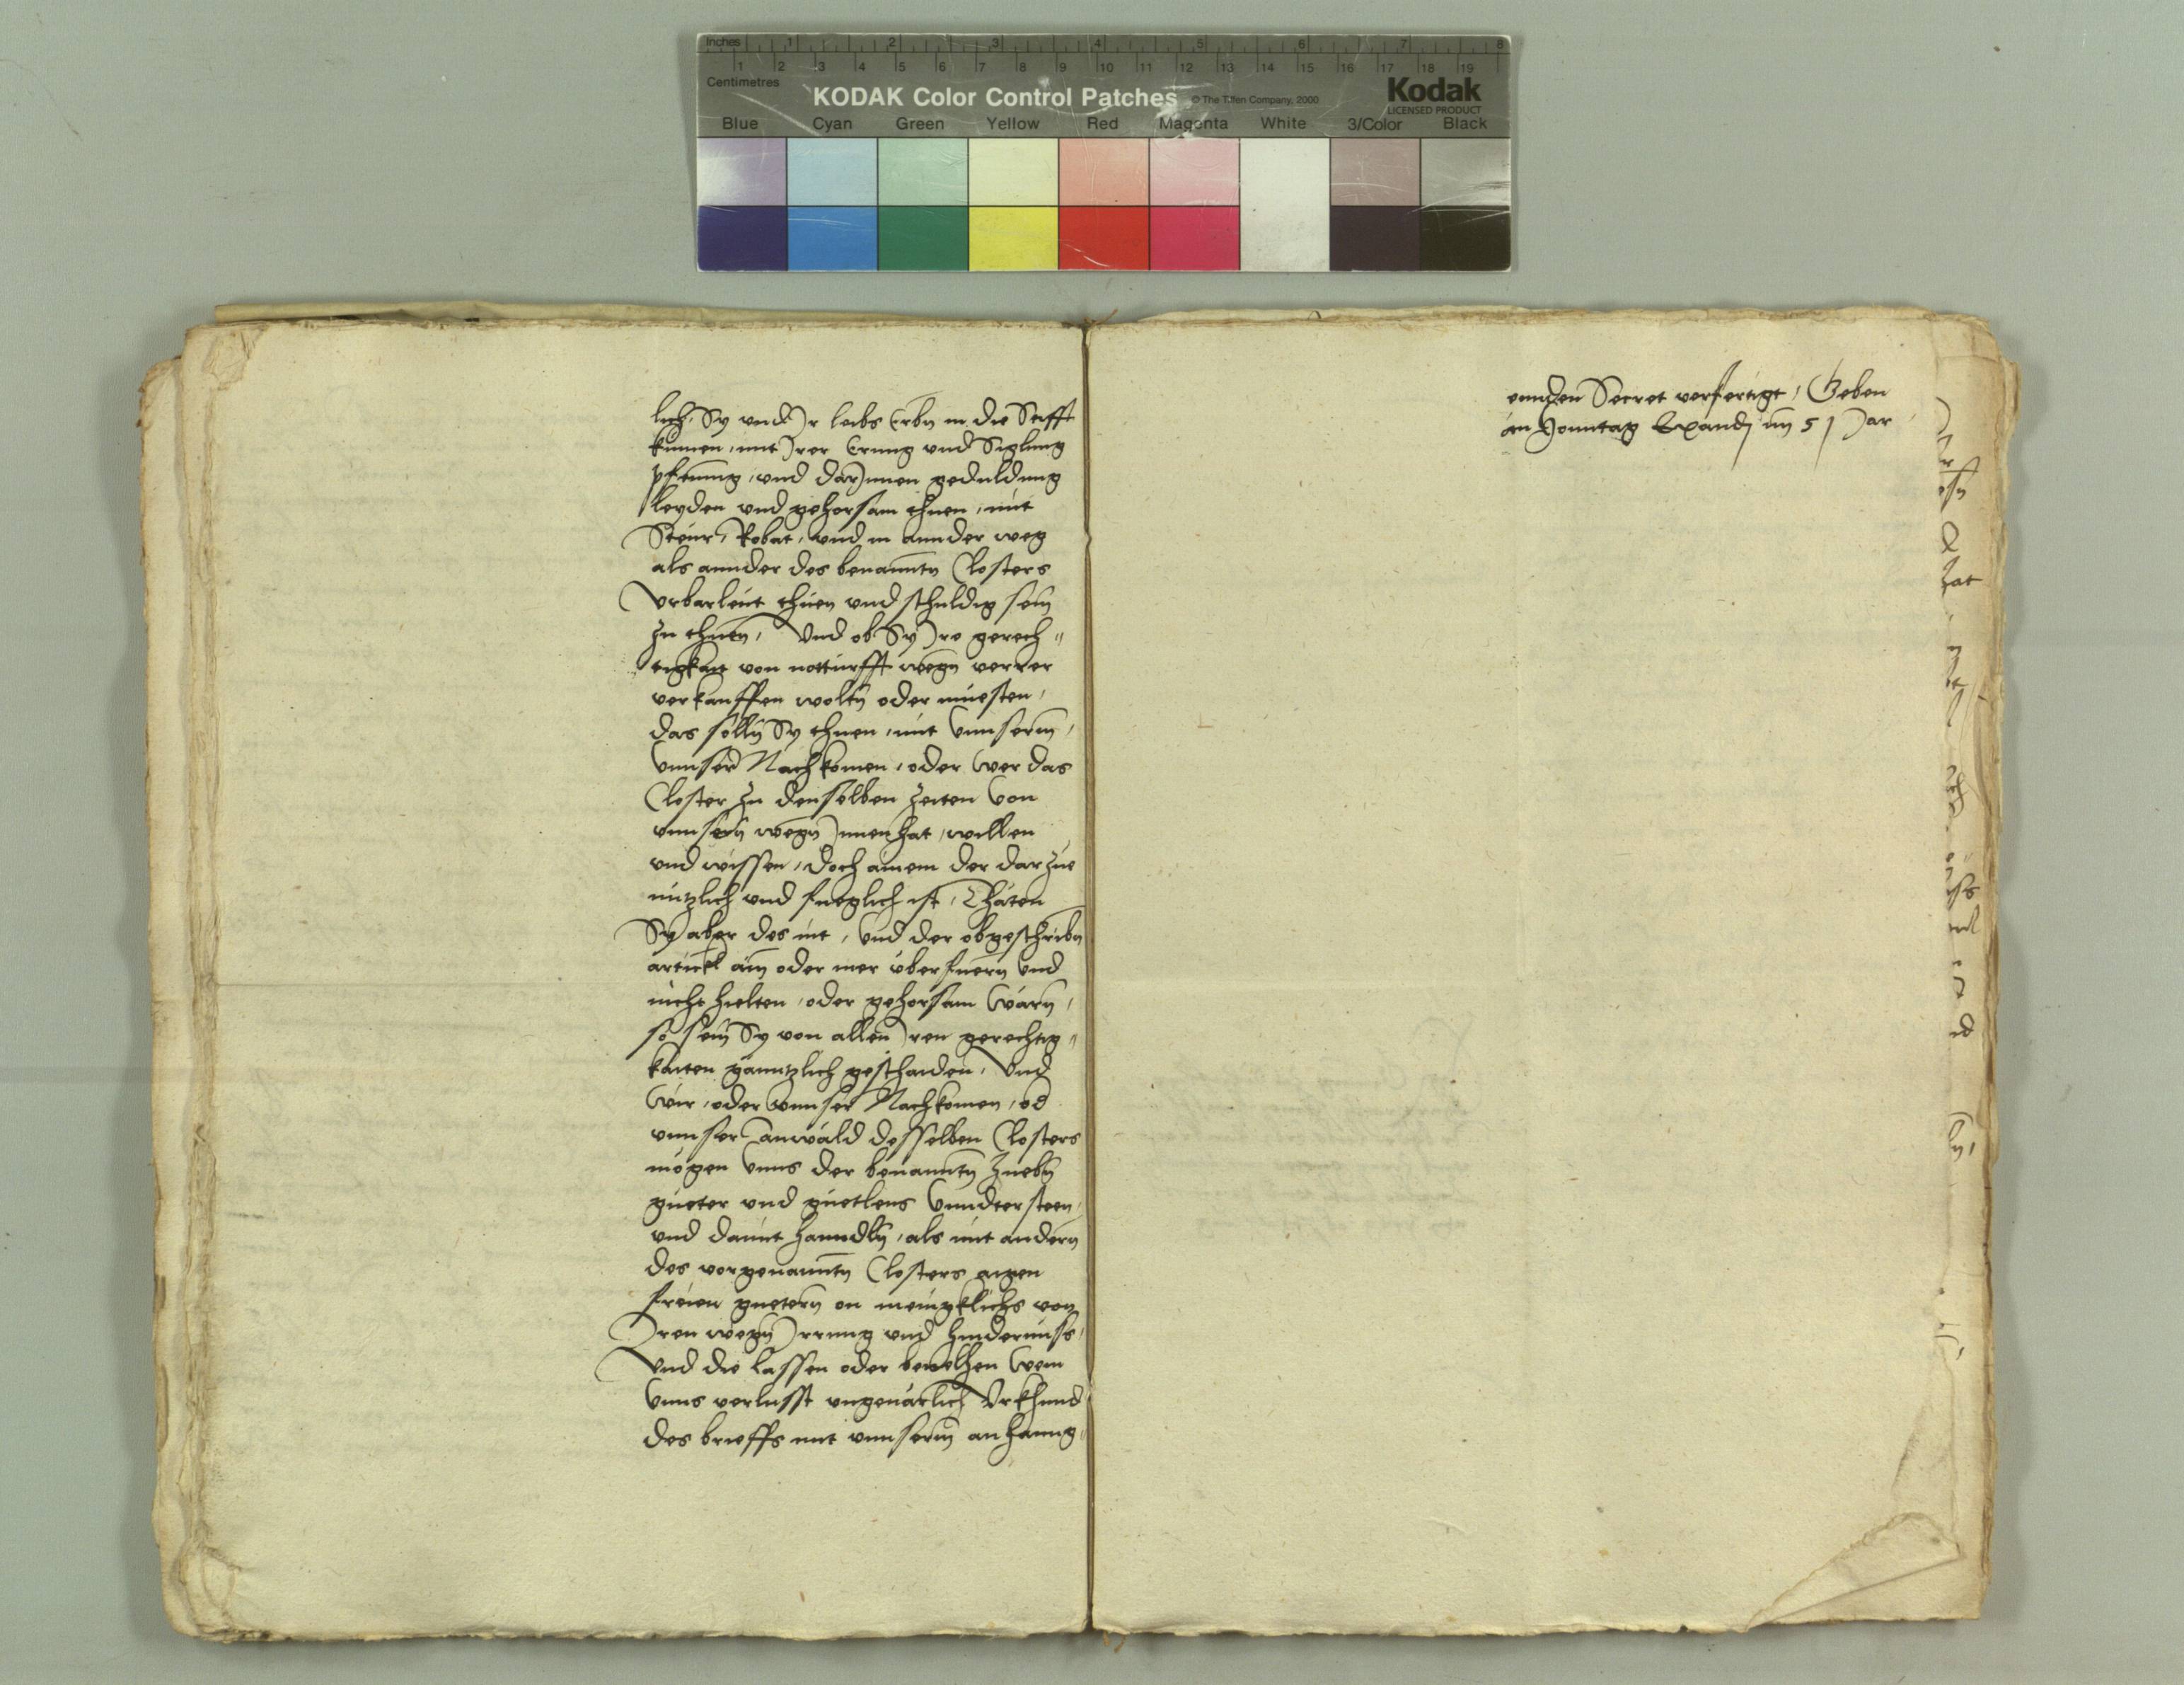 Inches 1 2 3 4 5 6 7 8
Centimetres 1 2 3 4 5 6 7 8 9 10 11 12 13 14 15 16 17 18 19
KODAK Color Control Patches © The Tiffen Company, 2000 Kodak
LICENSED PRODUCT
Blue Cyan Green Yellow Red Magenta White 3/Color Black
lich, Sy vnd Ir leibs Erbn in die Stifft
kumen, mit Irer Erung vnd Siglung
pfening, vnd darInnen geduldung
leyden vnd gehorsam thuen, mit
Steur, Robat, vnd in annder weg
als annder des benanntn Closters
Vrbarleut thuen vnd schuldig sein
zu thuen, Vnd ob Sy Ire gerech„
tigkait von notturfft wegn verrer
verkauffen woltn oder muesten,
das solln Sy thuen, mit vnnserm,
vnnser Nachkomen, oder wer das
Closter zu denselben zeiten von
vnnsern wegn Innen hat, willen
vnd wissen, doch ainem der darzue
nutzlich vnd fueglich ist, Thäten
Sy aber des nit, vnd der obgeschribn
artickl ain oder mer überfuern vnd
nicht hielten, oder gehorsam wärn,
so sein Sy von allen Iren gerechtig„
kaiten ganntzlich geschaiden, Vnd
wir, oder vnnser Nachkomen, od
vnnser anwäld desselben Closters
mögen vnns der benanntn Huebn
gueter vnd guetlens vnndtersteen,
vnd damit hanndln, als mit andern
des vorgenanntn Closters aigen
freien guetern on menigklichs von
Iren wegn Irrung vnd hindernuss,
Vnd die lassen oder bevelhen wem
vnns verlusst vngeuärlich Vrkhund
des brieffs mit vnnserm anhanng„
ennden Secret verfertigt, Geben
an Sonntag Exaudj im 51 Jar
hat